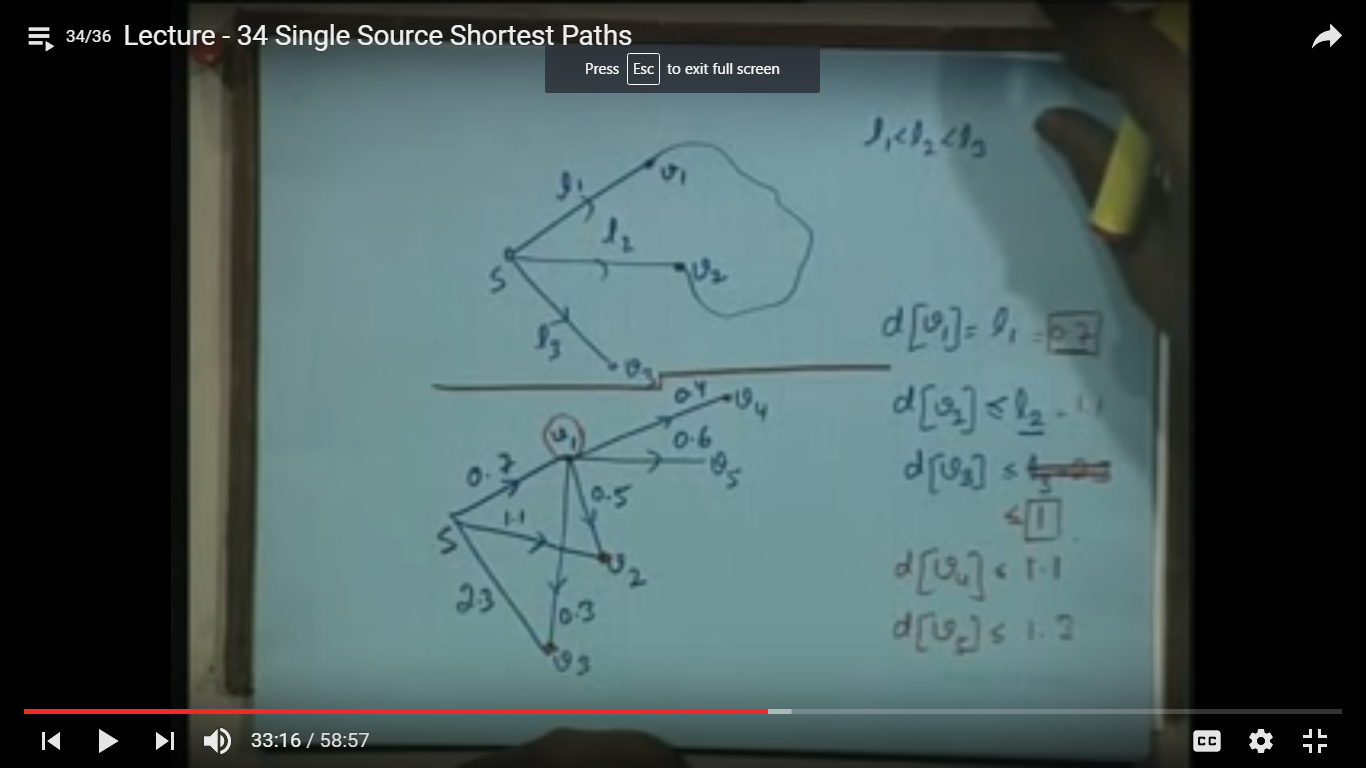 34/36 Lecture - 34 Single Source Shortest Paths
Press Esc to exit full screen
l₁<l₂<l₃
l₁
v₁
l₂
S
v₂
l₃
v₃
d[v₁] = l₁ = 0.7
d[v₂] ≤ l₂ = 1.1
d[v₃] ≤
≤ 1
d[v₄] ≤ 1.1
d[v₅] ≤ 1.3
v₁
0.4
v₄
0.6
v₅
0.7
0.5
1.1
S
v₂
2.3
0.3
v₃
33:16 / 58:57
CC